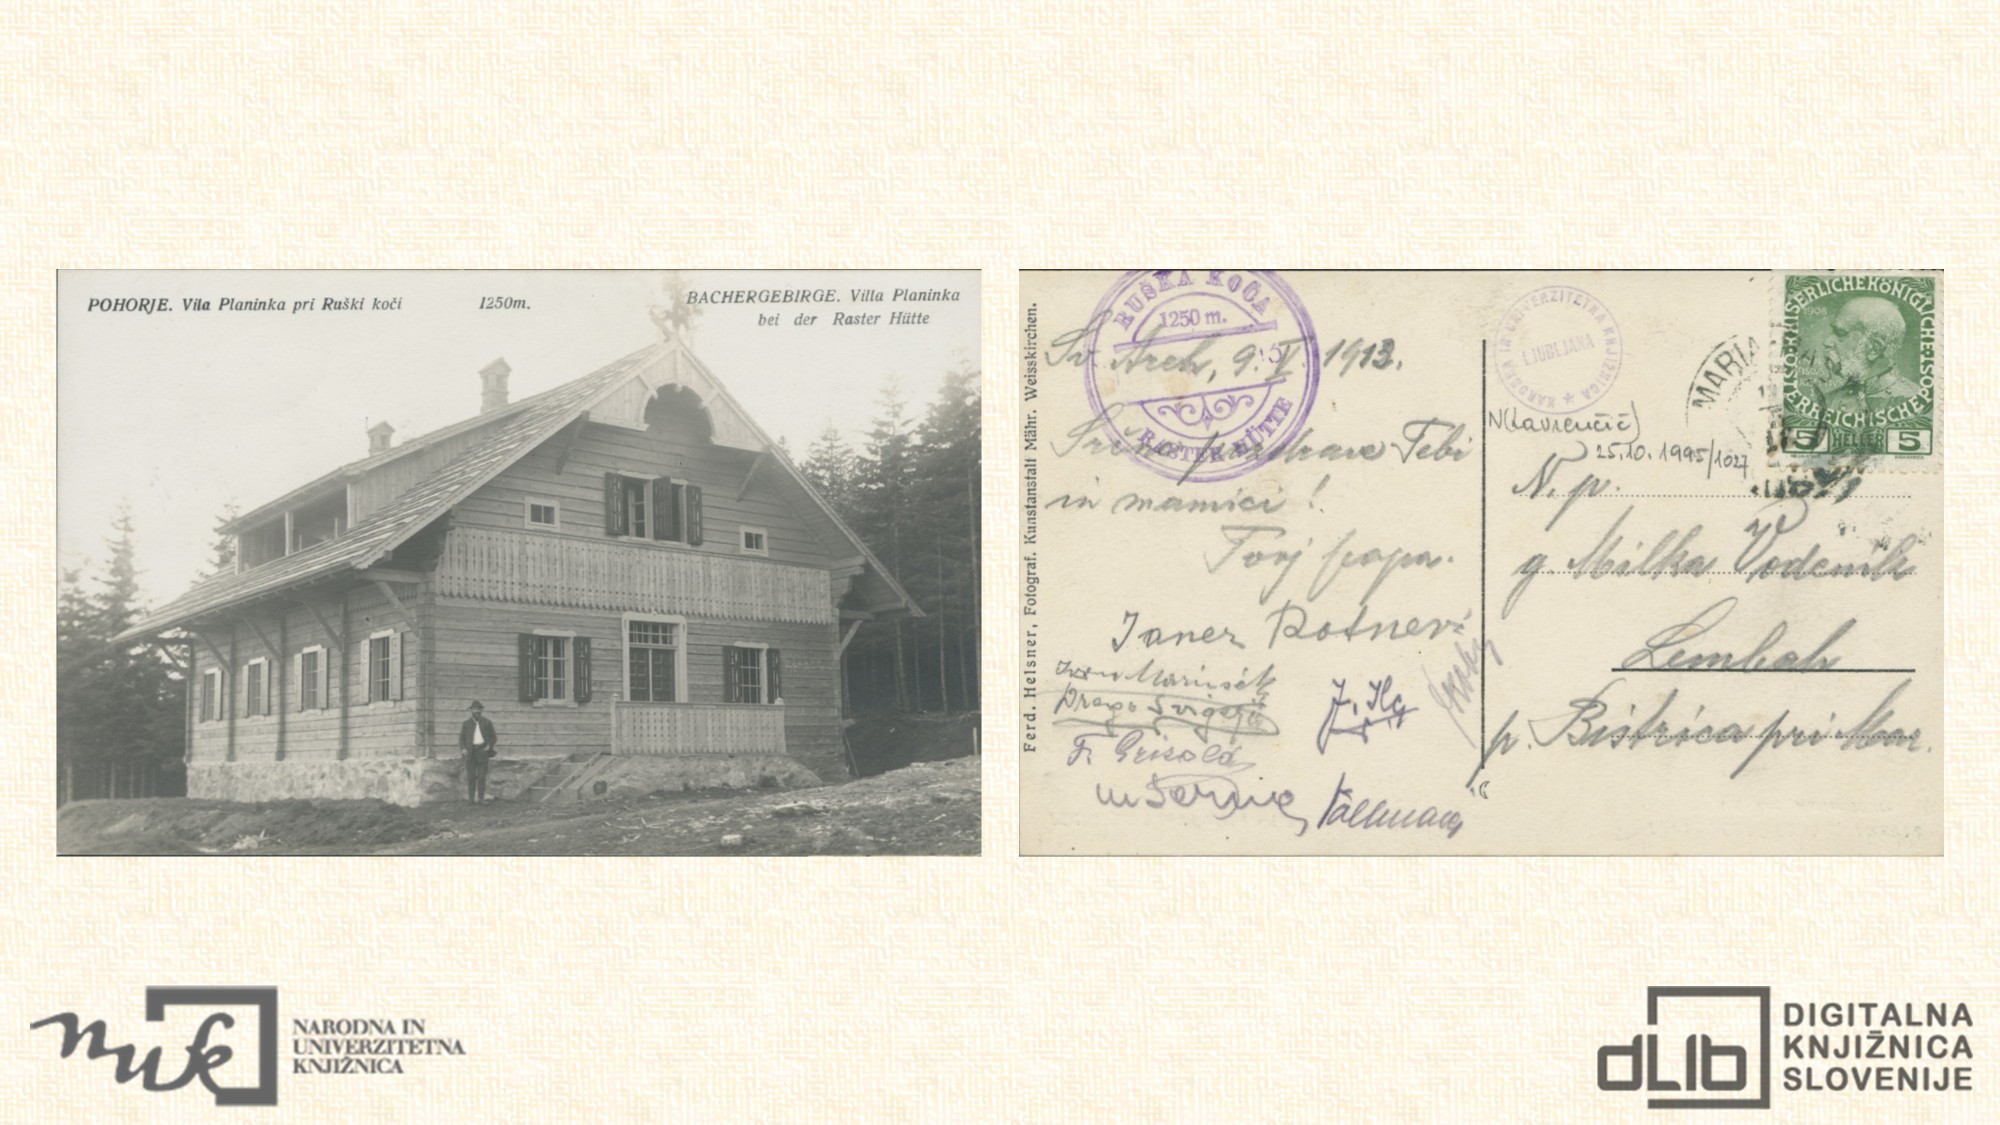 POHORJE. Vila Planinka pri Ruški koči 1250m.
BACHERGEBIRGE. Villa Planinka
bei der Raster Hütte
Ferd. Helsner, Fotograf. Kunstanstalt Mähr. Weisskirchen.
RUŠKA KOČA
1250 m.
RASTER HÜTTE
Sv. Areh, 9. V. 1913.
Srčne pozdrave Tebi
in mamici!
Tvoj papa.
Janez
Drago
F. Grizold
J. Ilg
NARODNA IN UNIVERZITETNA KNJIŽNICA
LJUBLJANA
MARIA
KAISERLICHE KÖNIGLICHE
1908
ÖSTERREICHISCHE POST
5 HELLER 5
N(Lavrenčič)
25.10.1995/1027
N. p.
g. Milka Vodenik
Lembah
p. Bistrica pri Mar.
nuk
NARODNA IN
UNIVERZITETNA
KNJIŽNICA
dLib
DIGITALNA
KNJIŽNICA
SLOVENIJE